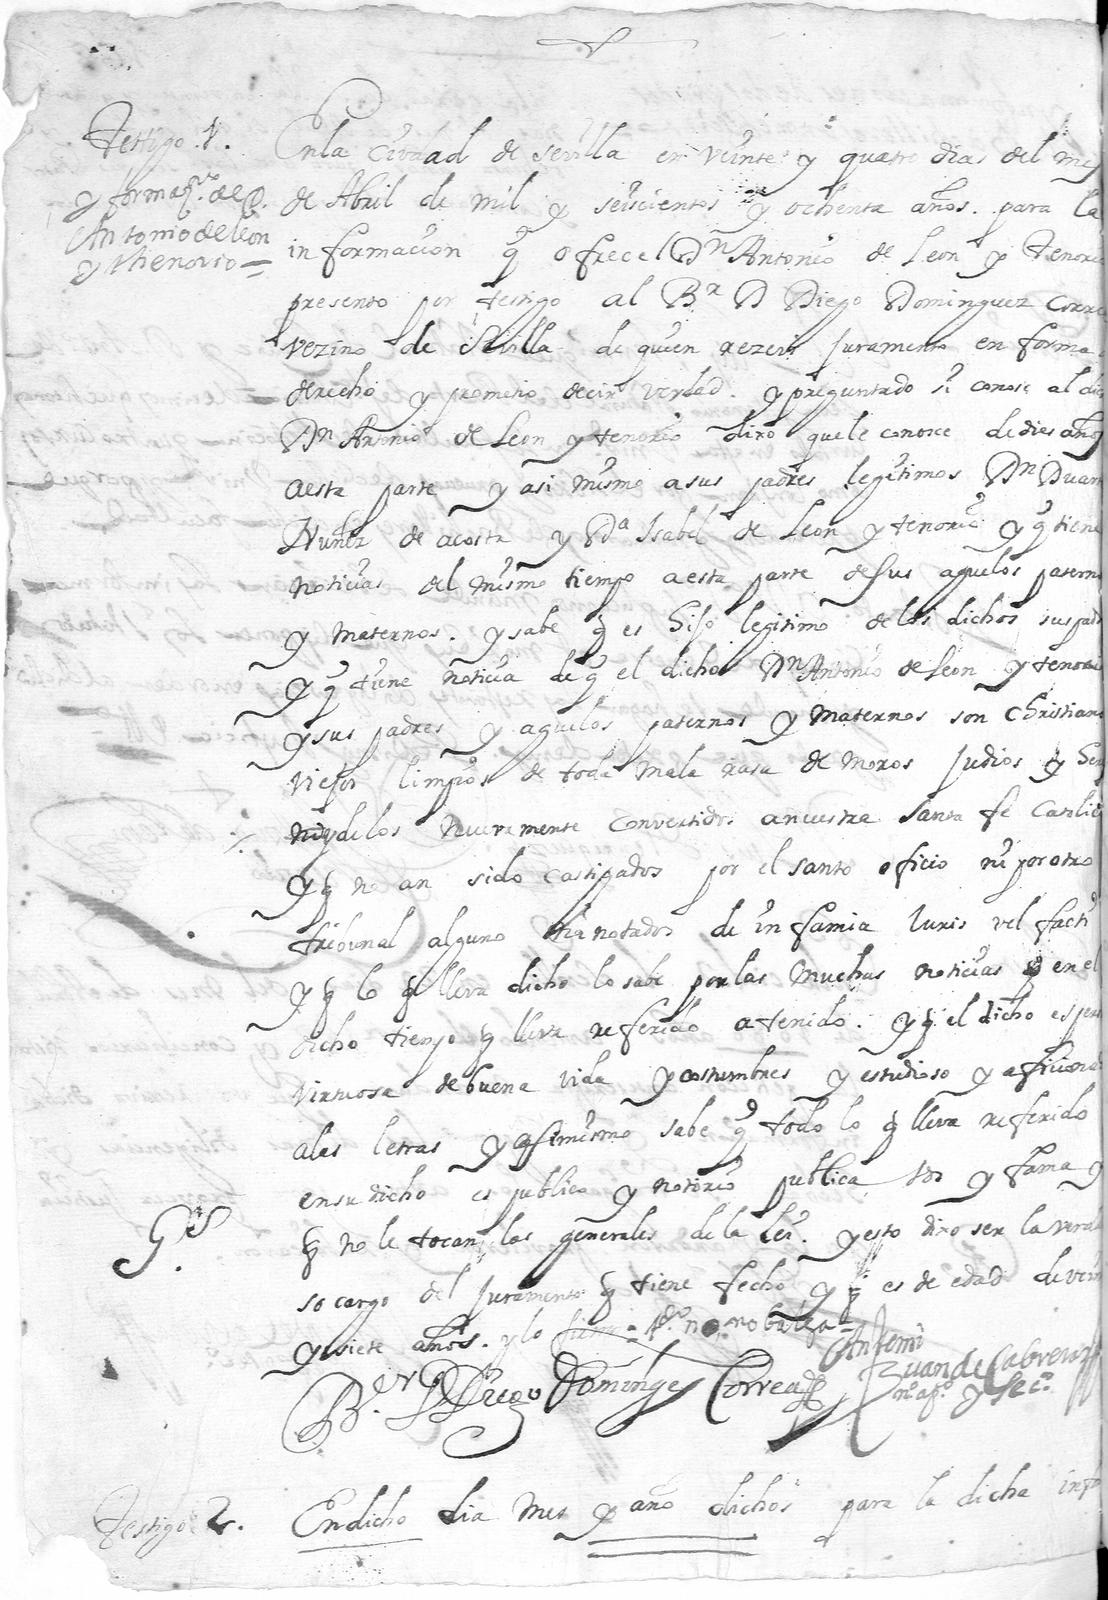 Testigo .1.
Antonio de leon
y thenorio =
En la Ciudad de sevilla en veinte y quatro dias del mes
de Abril de mil y seiscientos y ochenta años. para la
informacion q ofrece el Dn Antonio de Leon y Tenorio
presento por testigo al Br D Diego Dominguez Corre
Vezino de Sevilla de quien rezevi juramento en forma
derecho y prometio decir verdad. y preguntado si conose al dic
Dn Antonio de Leon y tenorio dixo que le conoce de dies años
aesta parte y asi mismo a sus padres legitimos Dn Duart
Nuñez de acosta y Da Isabel de Leon y tenorio y q tiene
noticias del mismo tiempo aesta parte de sus aguelos paterno
y maternos. y sabe q es hijo legitimo de los dichos sus pad
y q tiene noticia de q el dicho Dn Antonio de Leon y tenori
y sus padres y aguelos paternos y maternos son christiano
viejos limpios de toda mala rasa de moros judios y
ni de los nuevamente convertidos a nuestra santa fe Catolic
y q no an sido castigados por el santo oficio ni por otro
tribunal alguno ni notados de infamia iuris vel facti
y q lo q lleva dicho lo sabe por las muchas noticias q en el
dicho tiempo q lleva referido a tenido. y q el dicho es per
virtuosa de buena vida y costumbres y estudioso y aficionad
a las letras y asimismo sabe q todo lo q lleva referido
en su dicho es publico y notorio publica vos y fama y
q no le tocan las generales de la Lei. y esto dixo ser la verda
so cargo del juramento q tiene fecho y q es de edad de vein
y siete años. y lo firmo = no balga =
Gs.
Br. D Diego Dominguez Correa
Ante mi
Juan de Cabrera
y Seco.
Testigo 2.
En dicho dia mes y año dichos para la dicha info